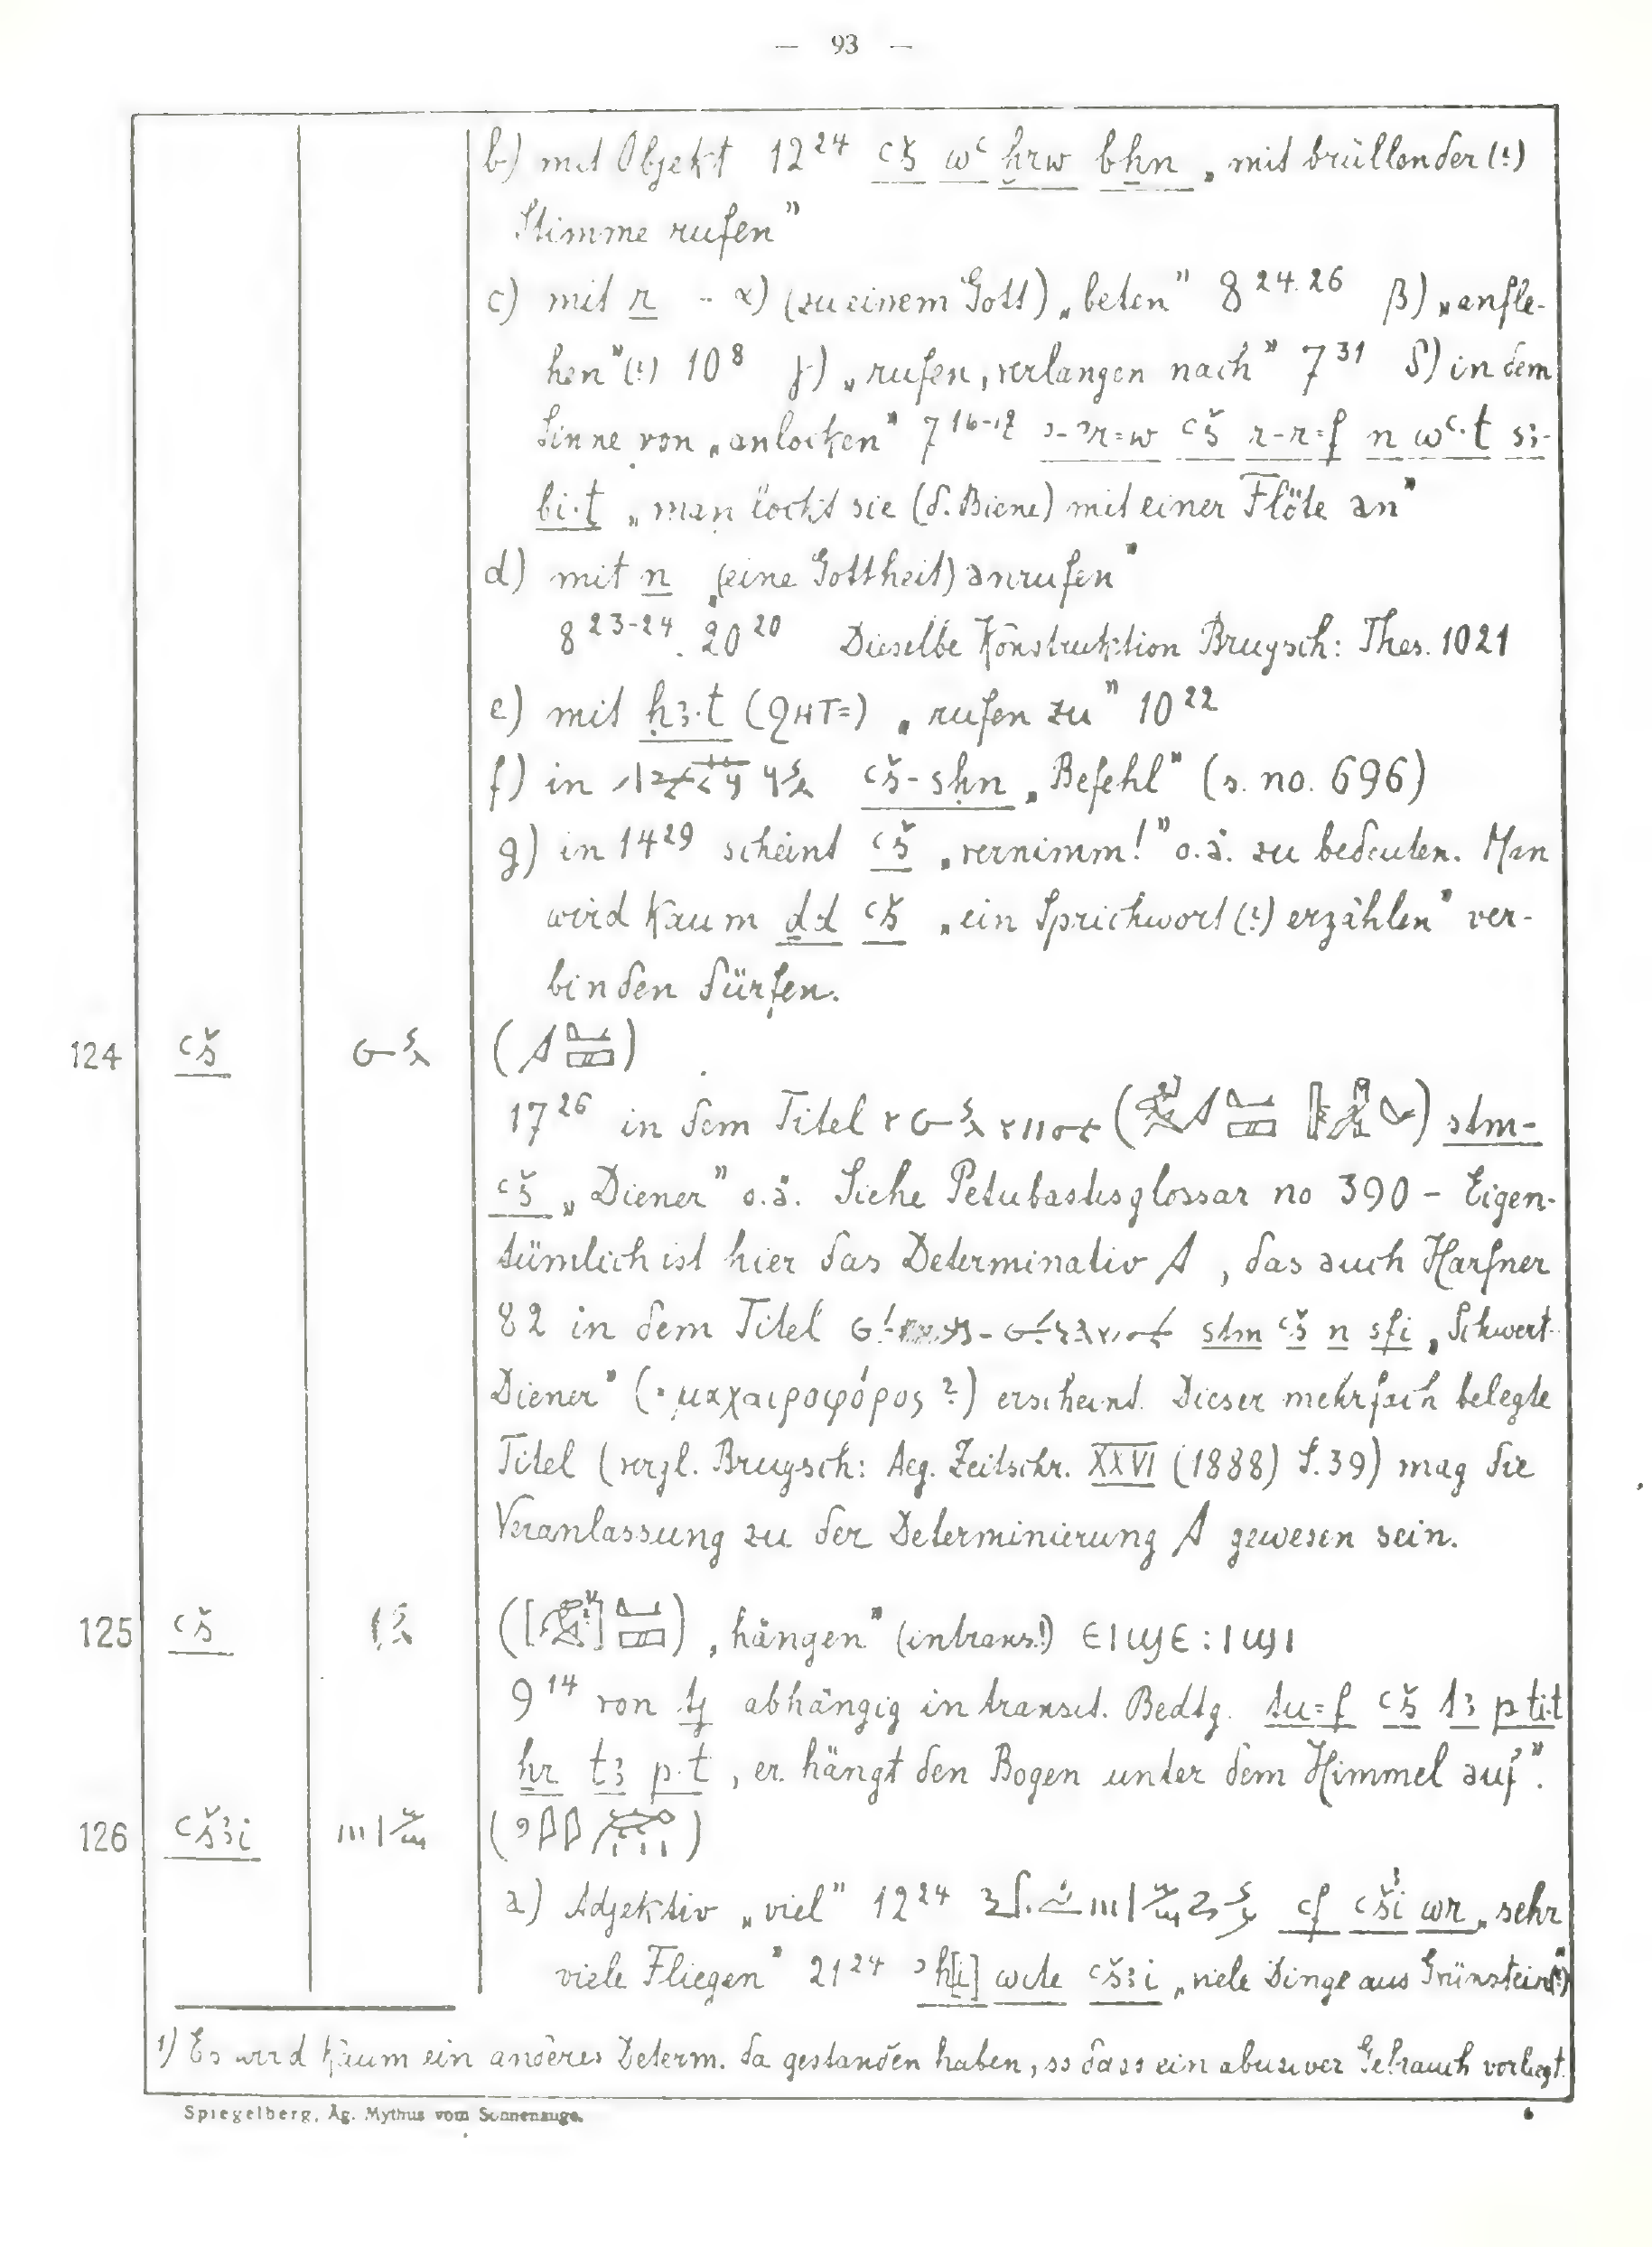 — 93 —
b) mit Objekt 12²⁴ ꜥš wꜥ ḫrw bhn „mit brüllender (?)
Stimme rufen”
c) mit r - α) (zu einem Gott) „beten” 8²⁴·²⁶ β) „anfle-
hen” (?) 10⁸ γ) „rufen, verlangen nach” 7³¹ δ) in dem
Sinne von „anlocken” 7¹⁶⁻¹⁷ ꜥš r-r=f n wꜥ·t sꜣ-
bi·t „man lockt sie (d. Biene) mit einer Flöte an”
d) mit n „(eine Gottheit) anrufen”
8²³⁻²⁴. 20²⁰ Dieselbe Konstruktion Brugsch: Thes. 1021
e) mit ḥꜣ·t (ϩⲏⲧ=) „rufen zu” 10²²
f) in ꜥš-sḥn „Befehl” (s. no. 696)
g) in 14²⁹ scheint ꜥš „vernimm!” o.ä. zu bedeuten. Man
wird kaum ḏd ꜥš „ein Sprichwort (?) erzählen” ver-
binden dürfen.
124 ꜥš
17²⁶ in dem Titel stm-
ꜥš „Diener” o.ä. Siehe Petubastisglossar no 390 – Eigen-
tümlich ist hier das Determinativ , das auch Harfner
82 in dem Titel stm ꜥš n sfi „Schwert-
Diener” (= μαχαιροφόρος ?) erscheint. Dieser mehrfach belegte
Titel (vergl. Brugsch: Aeg. Zeitschr. XXVI (1888) S. 39) mag die
Veranlassung zu der Determinierung gewesen sein.
125 ꜥš „hängen” (intrans.¹) ⲉⲓϣⲉ : ⲓϣⲓ
9¹⁴ von abhängig in transit. Bedtg. tu=f ꜥš tꜣ ptit
ẖr tꜣ p·t „er hängt den Bogen unter dem Himmel auf”.
126 ꜥšꜣi
a) Adjektiv „viel” 12²⁴ ꜥf ꜥšꜣi wr „sehr
viele Fliegen” 21²⁴ ꜣḫ[i] wte ꜥšꜣi „viele Dinge aus Grünstein(?)”
1) Es wird kaum ein anderes Determ. da gestanden haben, so dass ein abusiver Gebrauch vorliegt.
Spiegelberg, Äg. Mythus vom Sonnenauge.